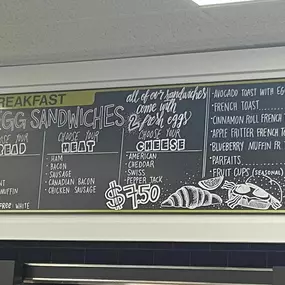 BREAKFAST
EGG SANDWICHES
all of our sandwiches
come with
fresh eggs
CHOOSE YOUR
MEAT
HAM
BACON
SAUSAGE
CANADIAN BACON
CHICKEN SAUSAGE
CHOOSE YOUR
CHEESE
AMERICAN
CHEDDAR
SWISS
PEPPER JACK
$7.50
WHITE
AVOCADO TOAST WITH EG
FRENCH TOAST
CINNAMON ROLL FRENCH
APPLE FRITTER FRENCH TO
BLUEBERRY MUFFIN FR
PARFAITS
FRUIT CUPS (SEASONAL)